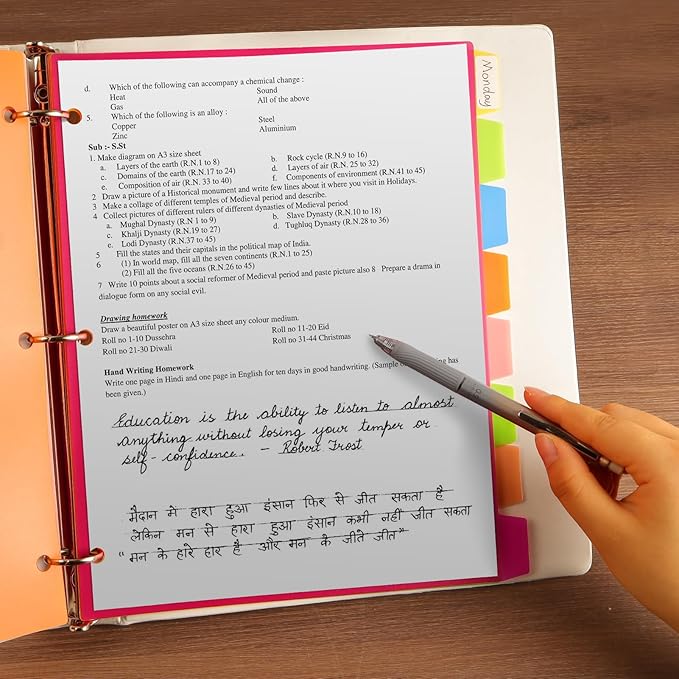 Monday
d. Which of the following can accompany a chemical change :
Heat Sound
Gas All of the above
5. Which of the following is an alloy :
Copper Steel
Zinc Aluminium
Sub :- S.St
1. Make diagram on A3 size sheet
a. Layers of the earth (R.N.1 to 8) b. Rock cycle (R.N.9 to 16)
c. Domains of the earth (R.N.17 to 24) d. Layers of air (R.N. 25 to 32)
e. Composition of air (R.N. 33 to 40) f. Components of environment (R.N.41 to 45)
2 Draw a picture of a Historical monument and write few lines about it where you visit in Holidays.
3 Make a collage of different temples of Medieval period and describe.
4 Collect pictures of different rulers of different dynasties of Medieval period
a. Mughal Dynasty (R.N 1 to 9) b. Slave Dynasty (R.N.10 to 18)
c. Khalji Dynasty (R.N.19 to 27) d. Tughluq Dynasty (R.N.28 to 36)
e. Lodi Dynasty (R.N.37 to 45)
5 Fill the states and their capitals in the political map of India.
6 (1) In world map, fill all the seven continents (R.N.1 to 25)
(2) Fill all the five oceans (R.N.26 to 45)
7 Write 10 points about a social reformer of Medieval period and paste picture also 8 Prepare a drama in
dialogue form on any social evil.
Drawing homework
Draw a beautiful poster on A3 size sheet any colour medium.
Roll no 1-10 Dussehra Roll no 11-20 Eid
Roll no 21-30 Diwali Roll no 31-44 Christmas
Hand Writing Homework
Write one page in Hindi and one page in English for ten days in good handwriting. (Sample has
been given.)
Education is the ability to listen to almost
anything without losing your temper or
self-confidence. - Robert Frost
मैदान में हारा हुआ इंसान फिर से जीत सकता है
लेकिन मन से हारा हुआ इंसान कभी नहीं जीत सकता
"मन के हारे हार है और मन के जीते जीत"